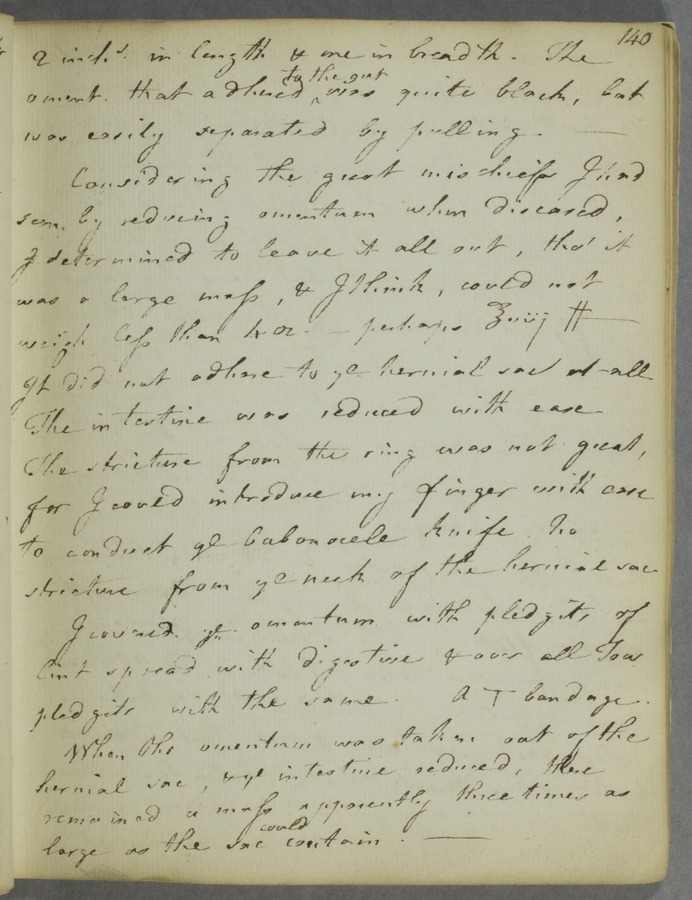 140
2 inchs. in length & one in breadth. The
oment. that adhered ^to the gut was quite black, but
was easily separated by pulling. —
Considering the great mischiefs I had
seen by reducing omentum when diseased,
I determined to leave it all out, tho' it
was a large mass, & I think, could not
weigh less than 4 oz. — perhaps
It did not adhere to ye hernial sac at-all
The intestine was reduced with ease
The stricture from the ring was not great,
for I could introduce my finger with ease
to conduct ye bubonocele knife. No
stricture from ye neck of the hernial sac
I covered ye omentum with pledgits of
lint spread with digestive & over all Tow
pledgits with the same. A T bandage.
When the omentum was taken out of the
hernial sac, & ye intestine reduced, there
remained a mass apparently three times as
large as the sac ^could contain. —